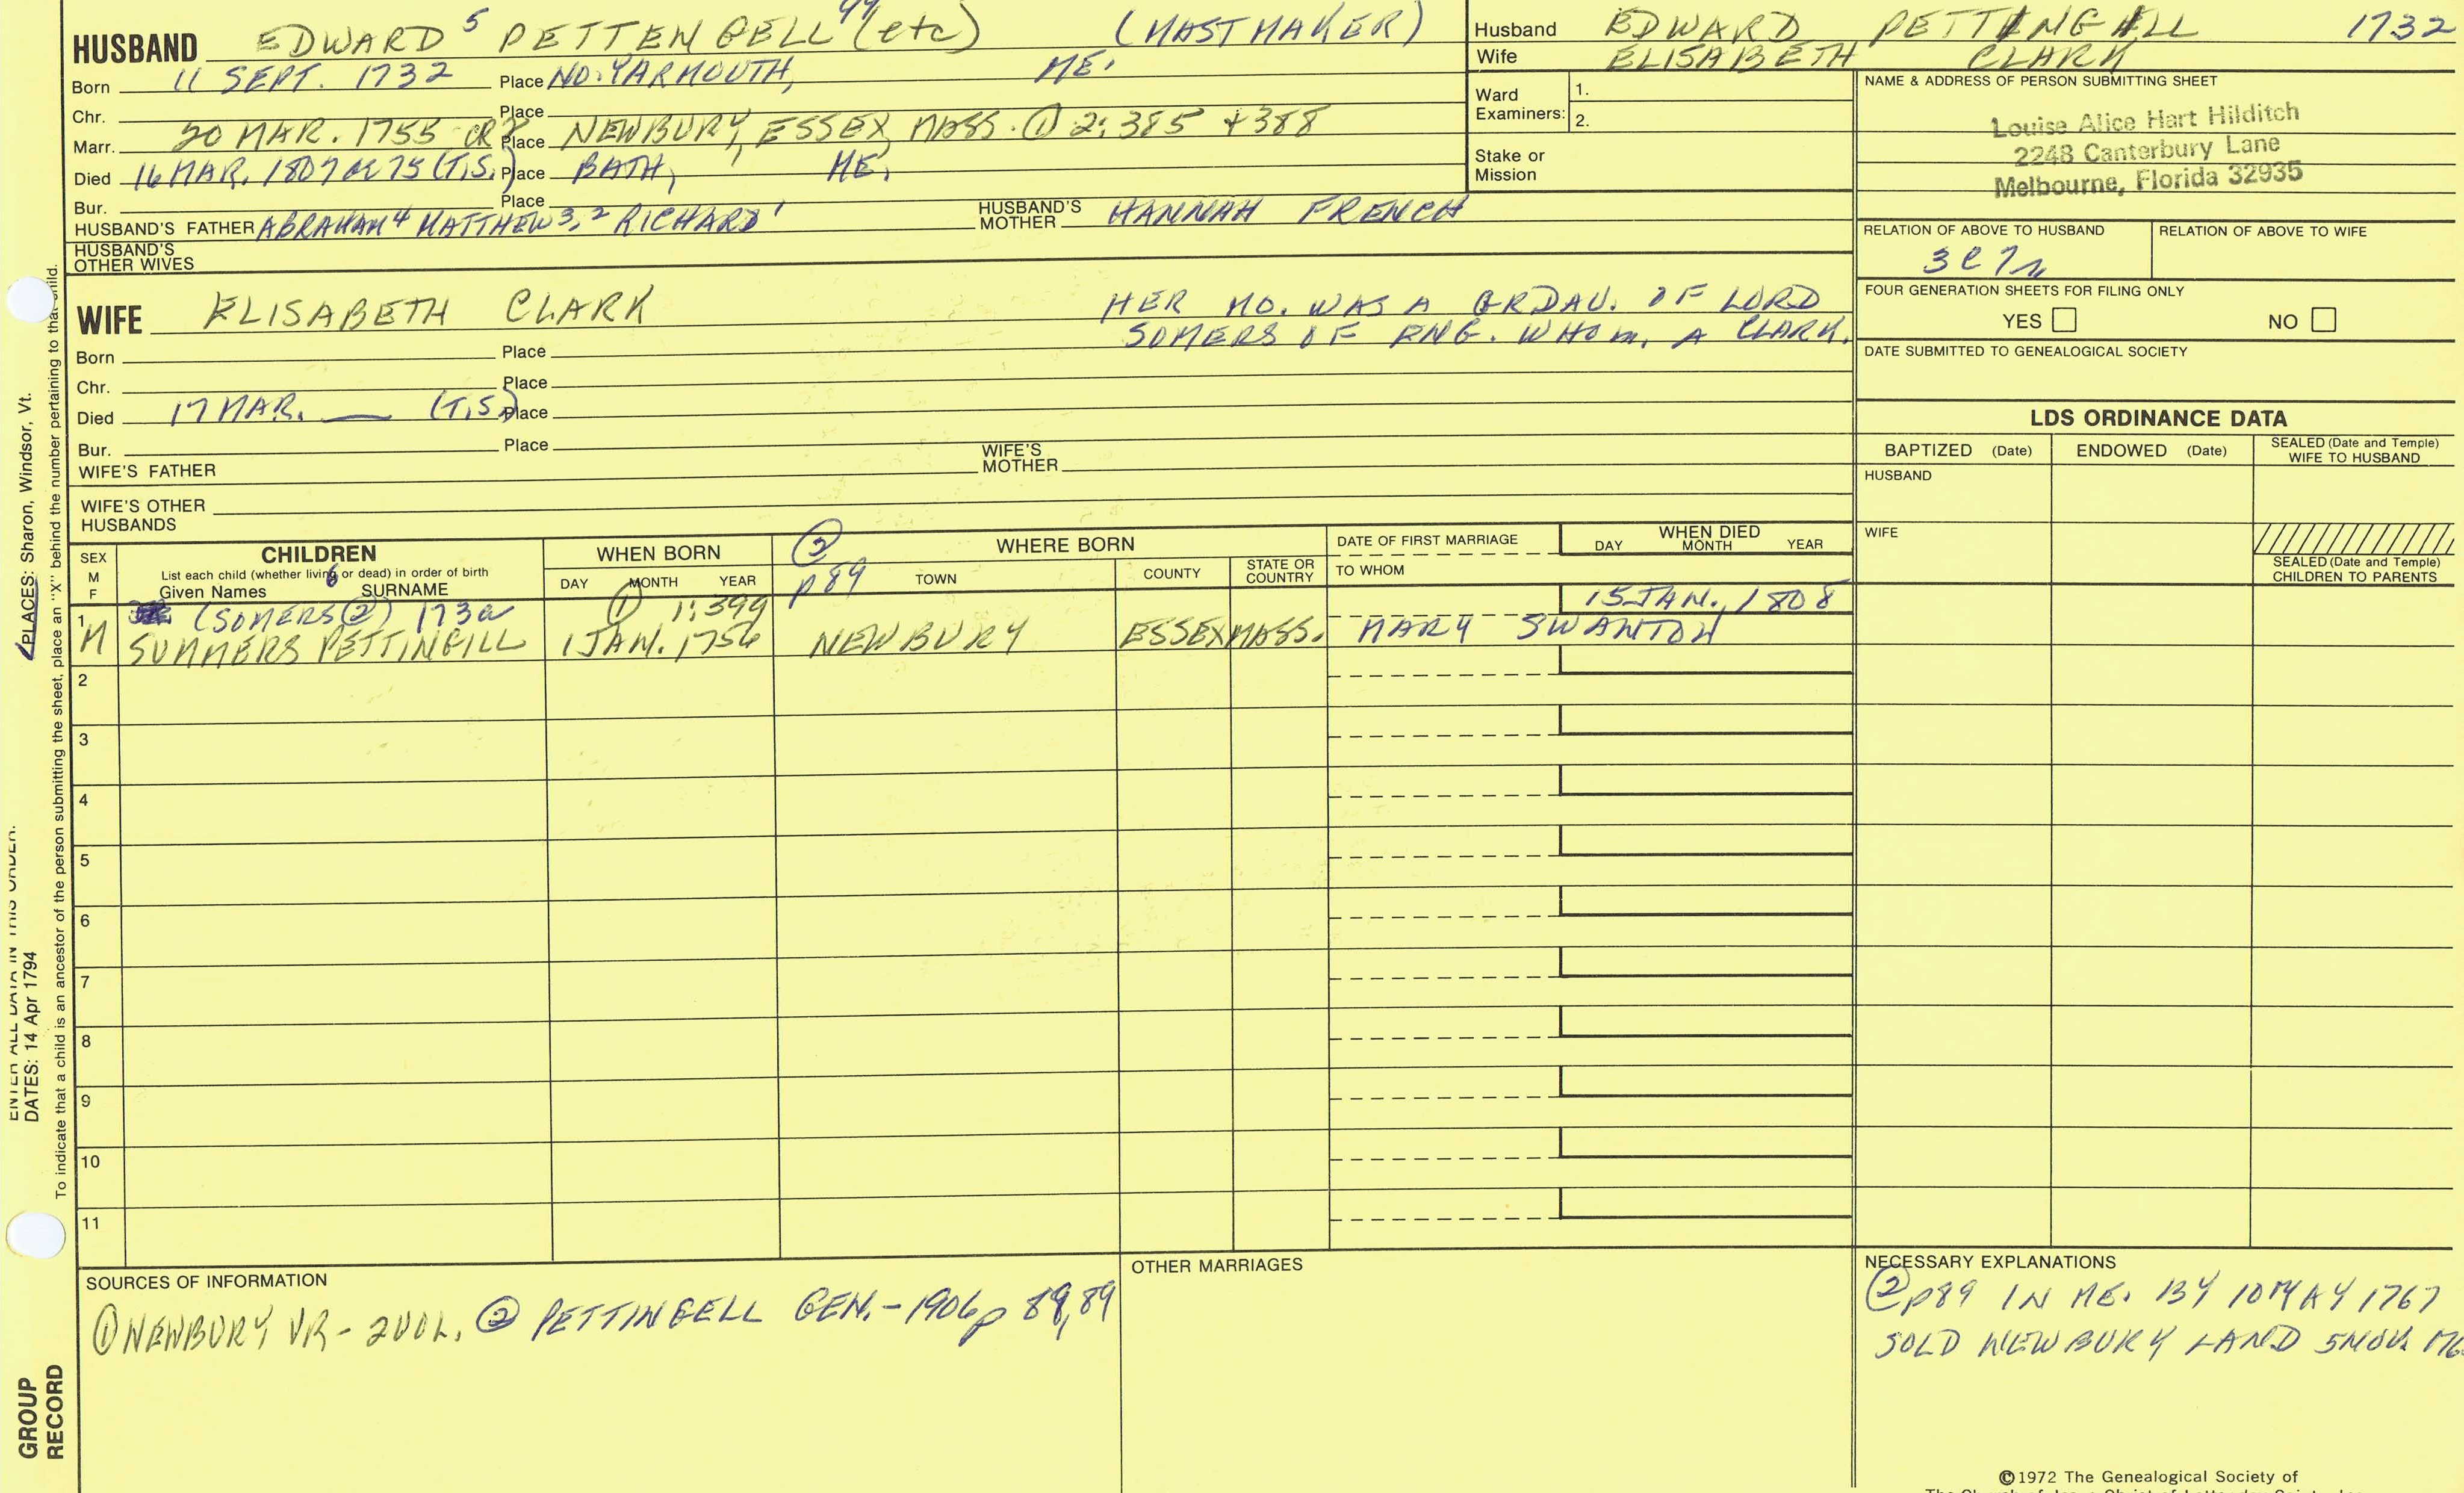 HUSBAND EDWARD 5 PETTENGELL (etc) (MASTMAKER)
Born 11 SEPT. 1732 Place NO. YARMOUTH, ME.
Chr. Place
Marr. 20 MAR. 1755 OR Place NEWBURY, ESSEX, MASS. ① 2:385 + 388
Died 16 MAR. 1807 or 75 (T.S.) Place BATH, ME.
Bur. Place
HUSBAND'S FATHER ABRAHAM 4 MATTHEW 3,2 RICHARD 1 HUSBAND'S MOTHER HANNAH FRENCH
HUSBAND'S OTHER WIVES
WIFE ELISABETH CLARK HER MO. WAS A GRDAU. OF LORD
SOMERS OF ENG. WHO m. A CLARK.
Born Place
Chr. Place
Died 17 MAR. (T.S.) Place
Bur. Place
WIFE'S FATHER WIFE'S MOTHER
WIFE'S OTHER HUSBANDS
Husband EDWARD PETTINGILL 1732
Wife ELISABETH CLARK
Ward Examiners: 1.
2.
Stake or Mission
NAME & ADDRESS OF PERSON SUBMITTING SHEET
Louise Alice Hart Hilditch
2248 Canterbury Lane
Melbourne, Florida 32935
RELATION OF ABOVE TO HUSBAND RELATION OF ABOVE TO WIFE
FOUR GENERATION SHEETS FOR FILING ONLY
YES NO
DATE SUBMITTED TO GENEALOGICAL SOCIETY
LDS ORDINANCE DATA
BAPTIZED (Date) ENDOWED (Date) SEALED (Date and Temple) WIFE TO HUSBAND
HUSBAND
WIFE
SEALED (Date and Temple) CHILDREN TO PARENTS
SEX M F
CHILDREN
List each child (whether living or dead) in order of birth
Given Names 6 SURNAME
WHEN BORN
DAY MONTH YEAR
② p 89
WHERE BORN
TOWN COUNTY STATE OR COUNTRY
DATE OF FIRST MARRIAGE
TO WHOM
WHEN DIED
DAY MONTH YEAR
1 (SOMERS ②) 173a ① 1:399 15 JAN. 1808
M SUMMERS PETTINGILL 1 JAN. 1756 NEWBURY ESSEX MASS. MARY SWANTON
2
3
4
5
6
7
8
9
10
11
SOURCES OF INFORMATION
① NEWBURY VR - 2 VOL. ② PETTINGELL GEN. - 1906 p 89
OTHER MARRIAGES
NECESSARY EXPLANATIONS
② p89 IN ME. BY 10 MAY 1767
SOLD NEWBURY LAND 5 NOV.
©1972 The Genealogical Society of
PLACES: Sharon, Windsor, Vt.
DATES: 14 Apr 1794
To indicate that a child is an ancestor of the person submitting the sheet, place an "X" behind the number pertaining to that child.
GROUP RECORD